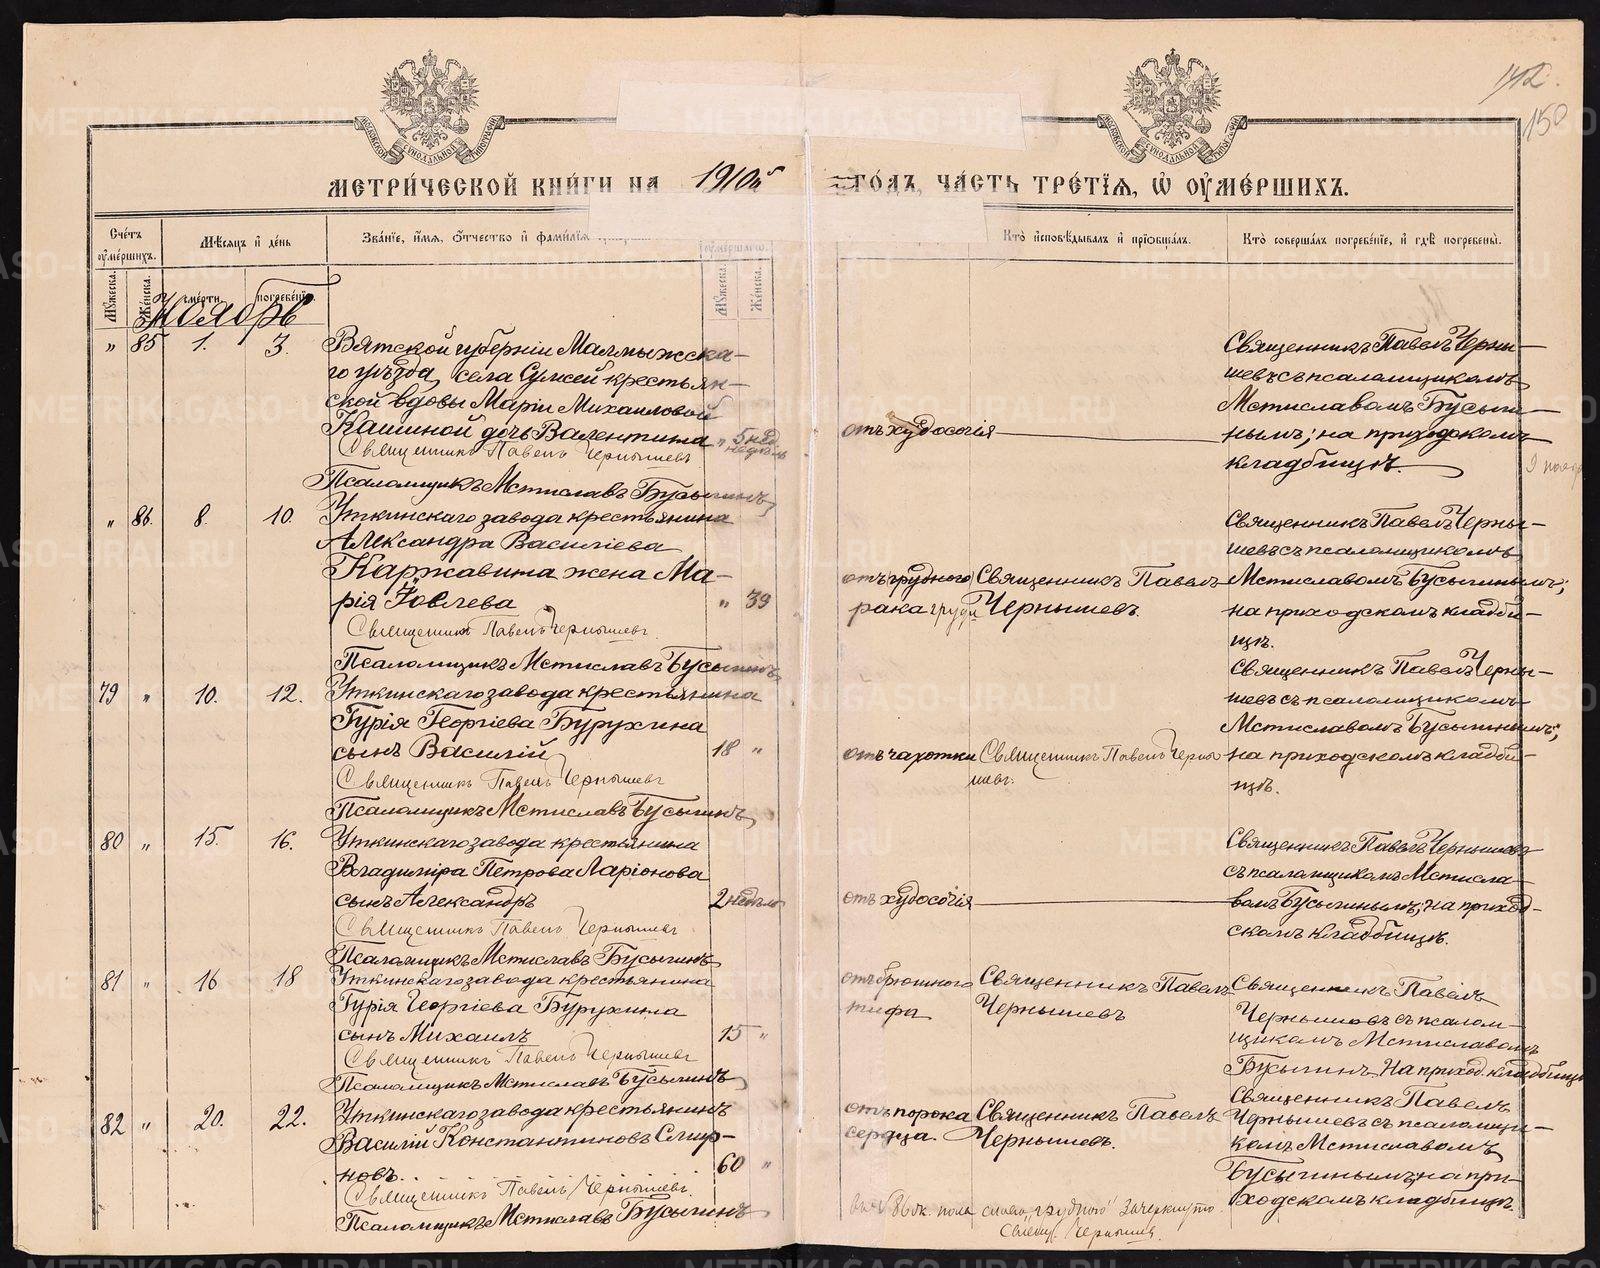 142.
150
МЕТРИ́ЧЕСКОЙ КНИ́ГИ НА 1910й ГО́ДЪ, ЧА́СТЬ ТРЕ́ТІѦ, Ѡ҆ ОУ҆МЕ́РШИХЪ.
Сче́тъ оу҆ме́ршихъ.
Мѣ́сяцъ и҆ де́нь
Зва́нїе, и҆́мя, ѻ҆́тчество и҆ фами́лїя
Кто̀ и҆сповѣ́дывалъ и҆ прїѡбща́лъ.
Кто̀ соверша́лъ погребе́нїе, и҆ гдѣ̀ погребены̀.
Му́жеска.
Же́нска.
сме́рти.
погребе́нїѧ.
Му́жеска.
Же́нска.
Ноябрь
„ 85 1. 3.
Вятской губерніи Малмыжска-
го уѣзда, села Сумсей крестьян-
ской вдовы Маріи Михаиловой
Кашиной дочь Валентина „ 5 нед.
недѣль
Священникъ Павелъ Чернышевъ
Псаломщикъ Мстиславъ Бусыгинъ
отъ худосочія
Священникъ Павелъ Черны-
шевъ съ псаломщикомъ
Мстиславомъ Бусыги-
нымъ; на приходскомъ
кладбищѣ.
„ 86. 8. 10.
Уткинскаго завода крестьянина
Александра Василіева
Каржавина жена Ма-
рія Іовлева „ 39
Священникъ Павелъ Чернышевъ.
Псаломщикъ Мстиславъ Бусыгинъ
отъ грудного
рака груди
Священникъ Павелъ
Чернышевъ.
Священникъ Павелъ Черны-
шевъ съ псаломщикомъ
Мстиславомъ Бусыгинымъ;
на приходскомъ кладби-
щѣ.
79 „ 10. 12.
Уткинскаго завода крестьянина
Гурія Георгіева Бурухина
сынъ Василій 18 „
Священникъ Павелъ Чернышевъ
Псаломщикъ Мстиславъ Бусыгинъ
отъ чахотки
Священникъ Павелъ Черны
шевъ.
Священникъ Павелъ Черны-
шевъ съ псаломщикомъ
Мстиславомъ Бусыгинымъ;
на приходскомъ кладби-
щѣ.
80 „ 15. 16.
Уткинскаго завода крестьянина
Владиміра Петрова Ларіонова
сынъ Александръ 2 недѣли
Священникъ Павелъ Чернышевъ
Псаломщикъ Мстиславъ Бусыгинъ
отъ худосочія
Священникъ Павелъ Чернышевъ
съ псаломщикомъ Мстисла-
вомъ Бусыгинымъ; на приход-
скомъ кладбищѣ.
81 „ 16 18
Уткинскаго завода крестьянина
Гурія Георгіева Бурухина
сынъ Михаилъ 15 „
Священникъ Павелъ Чернышевъ
Псаломщикъ Мстиславъ Бусыгинъ
отъ брюшного
тифа
Священникъ Павелъ
Чернышевъ
Священникъ Павелъ
Чернышевъ съ псалом-
щикомъ Мстиславомъ
Бусыгинъ. На приход. кладбищѣ
82 „ 20. 22.
Уткинскаго завода крестьянинъ
Василій Константиновъ Смир-
новъ. 60 „
Священникъ Павелъ Чернышевъ.
Псаломщикъ Мстиславъ Бусыгинъ
отъ порока
сердца.
Священникъ Павелъ
Чернышевъ.
Священникъ Павелъ
Чернышевъ съ псаломщи-
комъ Мстиславомъ
Бусыгинымъ; на при-
ходскомъ кладбищѣ.
86 ж. пола слово „грудного" зачеркнуто
Священ. Чернышев.